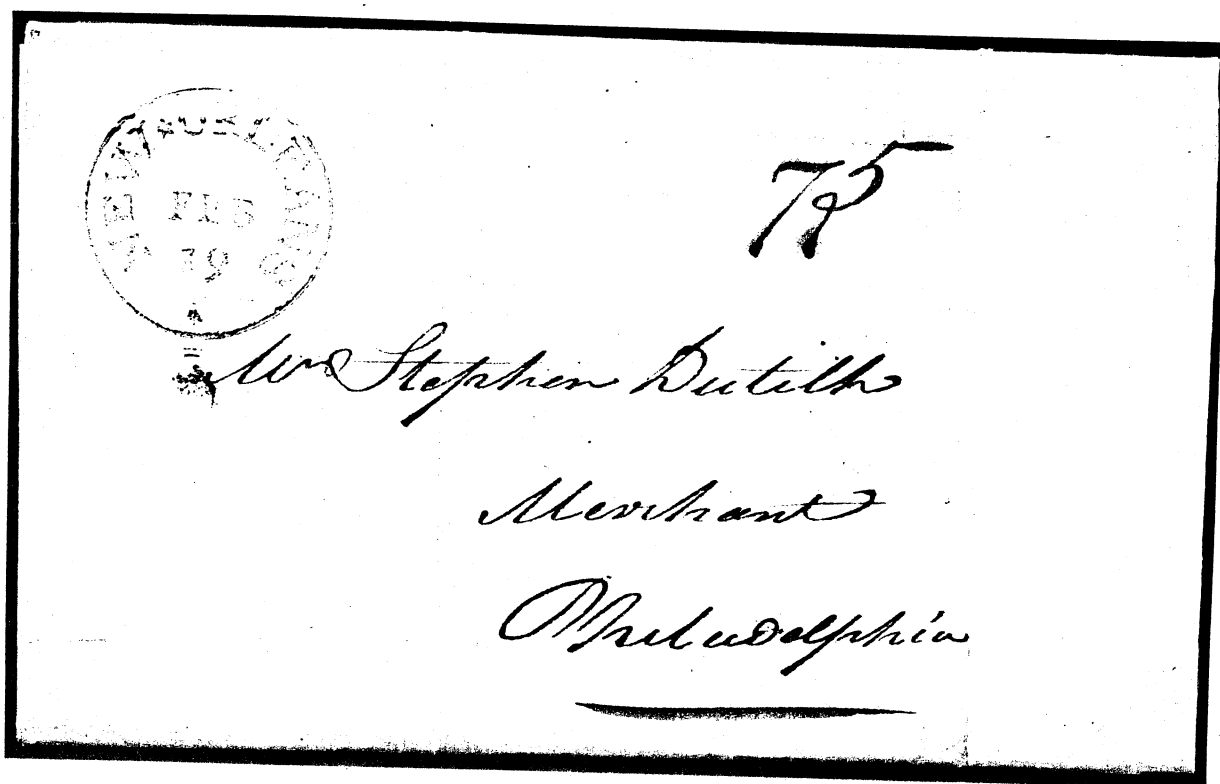 NEW ORLEANS
FEB
19
75
Mr Stephen Dutilh
Merchant
Philadelphia